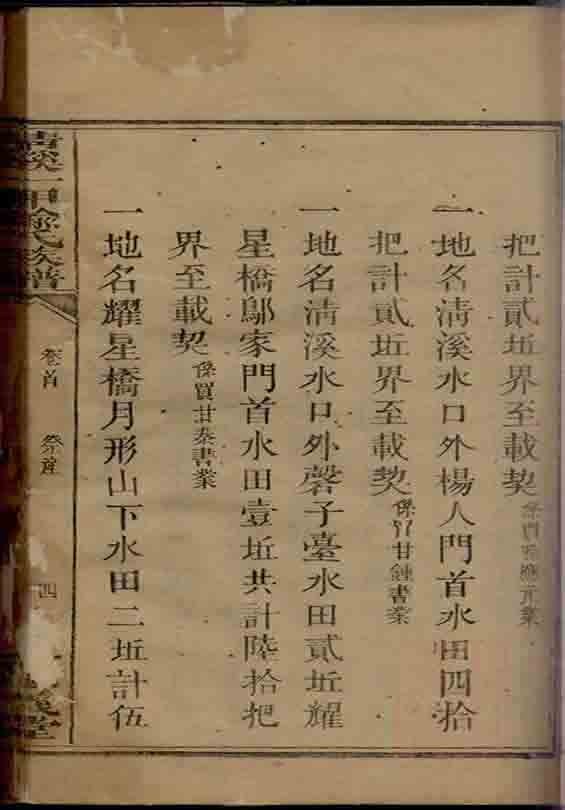 把計貳坵界至載契
一地名淸溪水口外楊人門首水田四拾
把計貳坵界至載契係買甘鍾書業
一地名淸溪水口外磬子臺水田貳坵耀
星橋鄔家門首水田壹坵共計陸拾把
界至載契係買甘泰書業
一地名耀星橋月形山下水田二坵計伍
氏族譜
卷首
祭產
四
堂